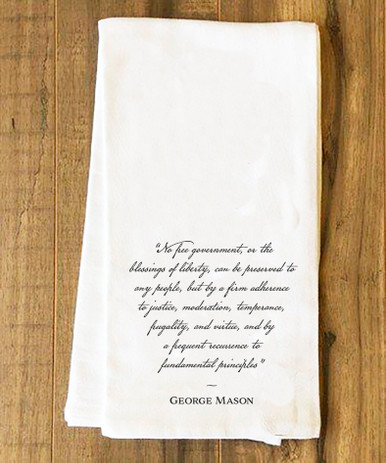 "No free government, or the
blessings of liberty, can be preserved to
any people, but by a firm adherence
to justice, moderation, temperance,
frugality, and virtue, and by
a frequent recurrence to
fundamental principles"
~
George Mason